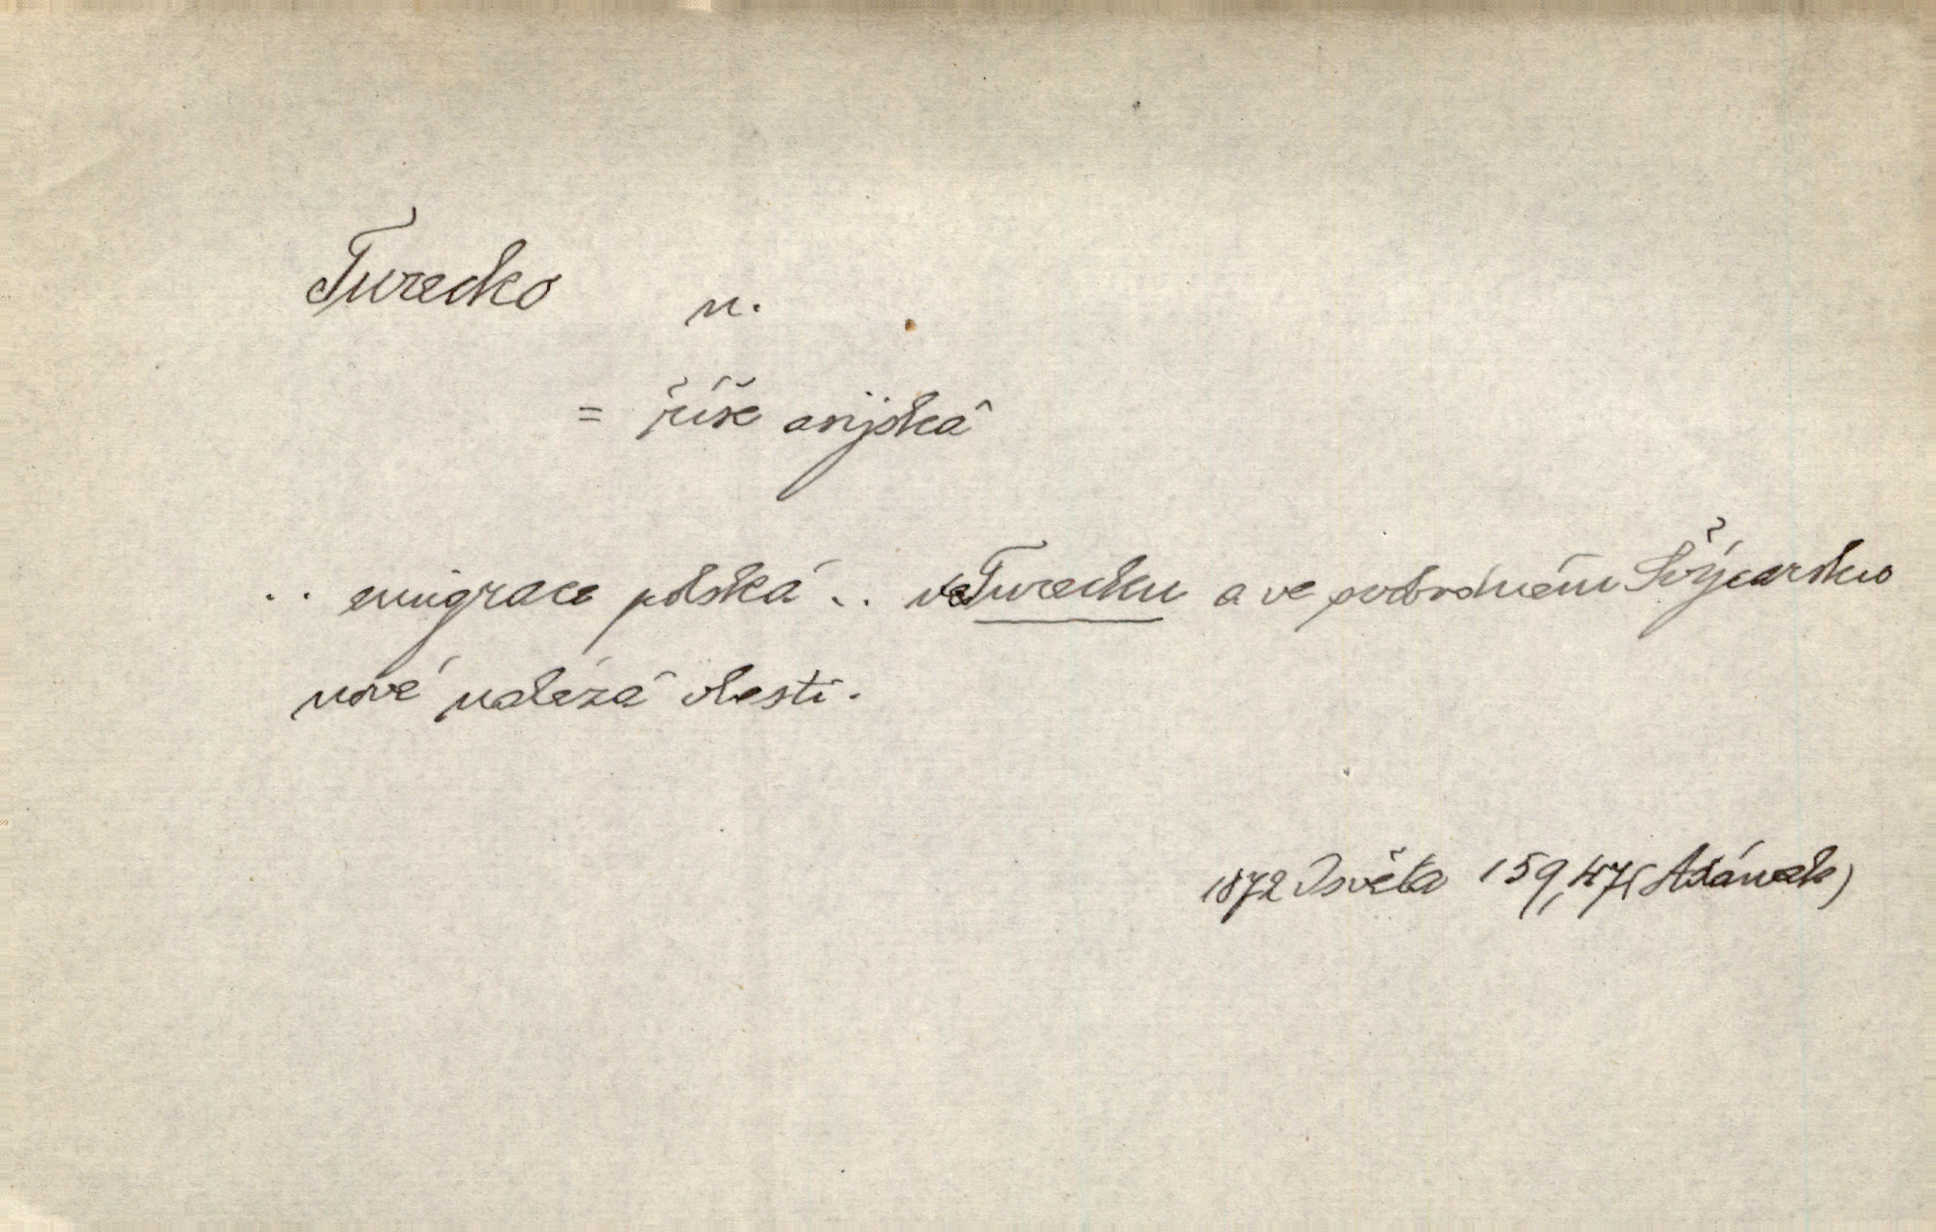 Turecko n.
= říše asijská
.. emigrace polská .. ve Turecku a ve svobodném Švýcarsku
nové nalézá vlasti.
1872 Osvěta 159,47 (Adámek)